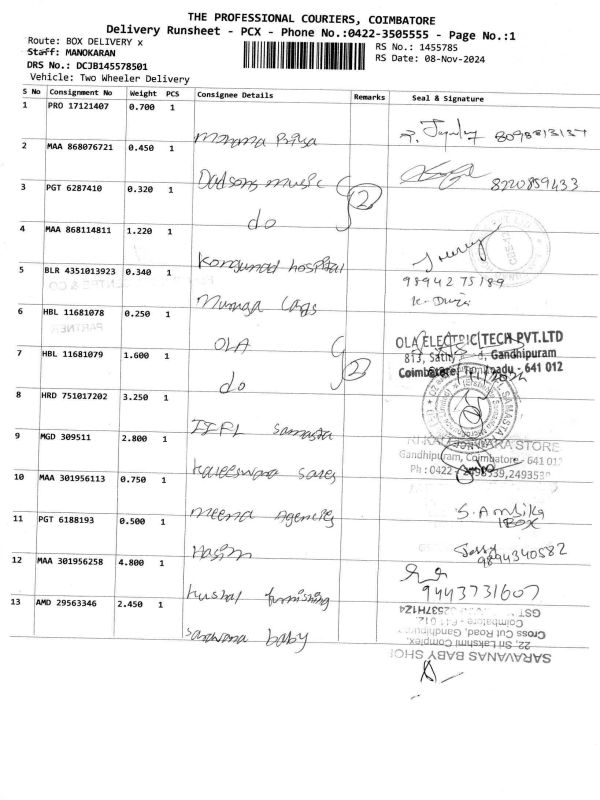 THE PROFESSIONAL COURIERS, COIMBATORE
Delivery Runsheet - PCX - Phone No.:0422-3505555 - Page No.:1
Route: BOX DELIVERY x
RS No.: 1455785
Staff: MANOKARAN
RS Date: 08-Nov-2024
DRS No.: DCJB145578501
Vehicle: Two Wheeler Delivery
S No Consignment No Weight PCS Consignee Details Remarks Seal & Signature
1 PRO 17121407 0.700 1
8098813137
2 MAA 868076721 0.450 1 Dadsons music 8220859433
3 PGT 6287410 0.320 1 do 2
4 MAA 868114811 1.220 1 Kongunad hospital
5 BLR 4351013923 0.340 1 9894275189
6 HBL 11681078 0.250 1 OLA
OLA ELECTRIC TECH PVT.LTD
813, Gandhipuram
Coimbatore - 641 012
7 HBL 11681079 1.600 1 do 2
8 HRD 751017202 3.250 1 IIFL Samasta
9 MGD 309511 2.800 1 Kaleeswara Sares
STORE
Gandhipuram, Coimbatore - 641 012
Ph : 0422 -
10 MAA 301956113 0.750 1 Meena Agencies
S. Ambika
1 BOX
11 PGT 6188193 0.500 1 Hasim
9894340582
12 MAA 301956258 4.800 1 Kushal furnishing
9443731607
13 AMD 29563346 2.450 1 Saravana baby
Coimbatore - 641 012.
Cross Cut Road, Gandhipuram
22, Sri Lakshmi Complex,
SARAVANAS BABY SHOP